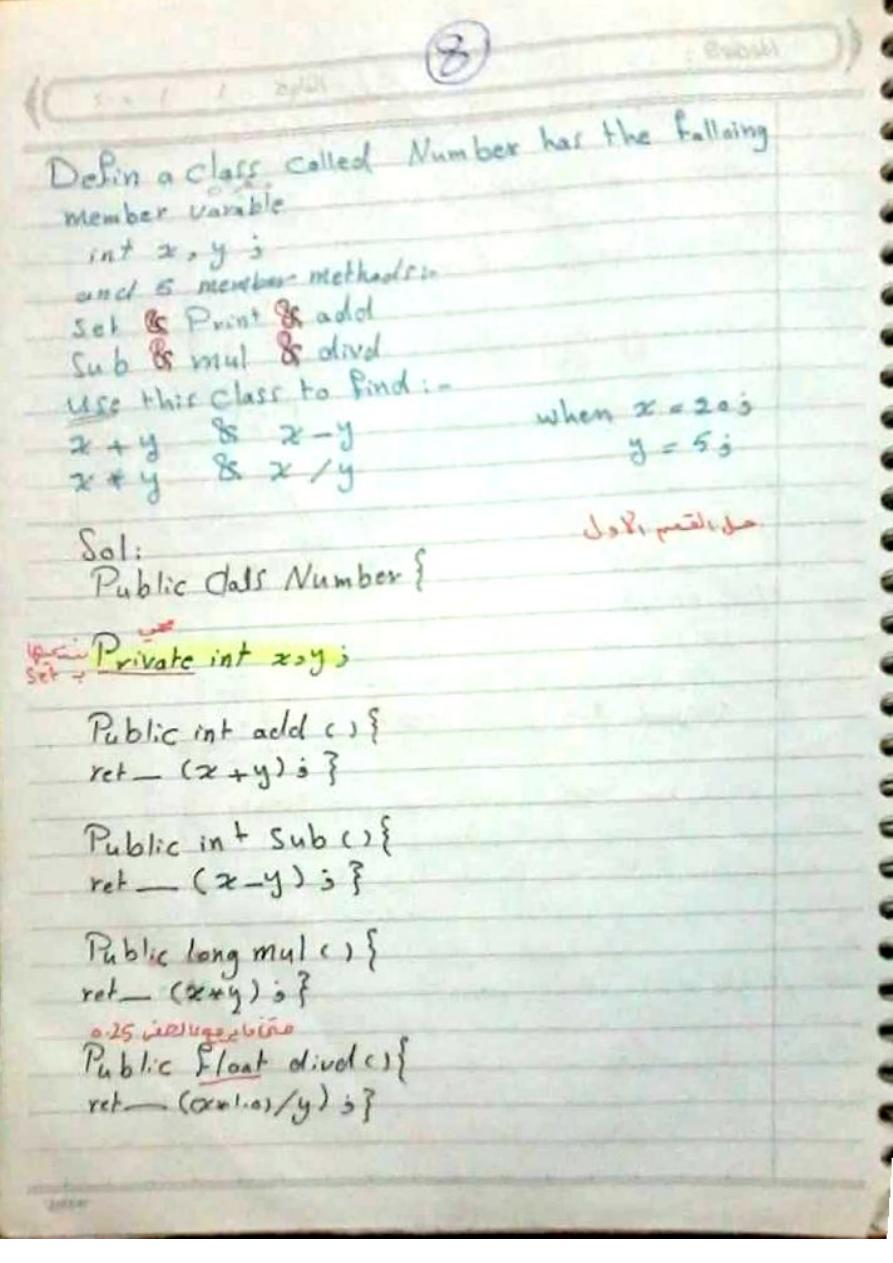 8
Defin a class called Number has the fallaing
member varable
int x, y ;
and 5 member methods:-
Set & Print & add
Sub & mul & divd
Use this class to find :-
x + y & x - y when x = 20 ;
x * y & x / y y = 5 ;
حل القسم الاول
Sol:
Public Class Number {
Private int x, y ;
Set
Public int add () {
ret_ (x + y) ; }
Public int Sub () {
ret_ (x - y) ; }
Public long mul () {
ret_ (x*y) ; }
0.25
Public float divd () {
ret_ (x*1.0)/y) ; }